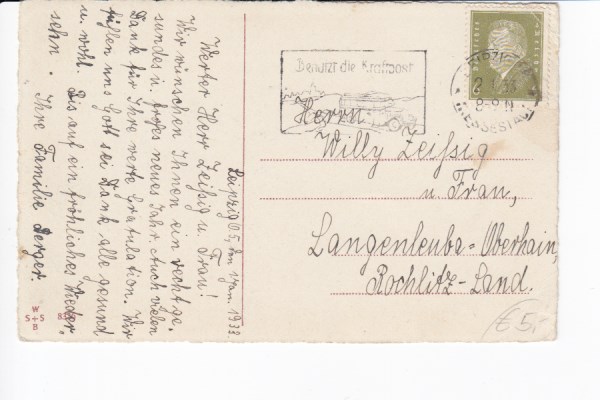 Leipzig O5, den 1 Jan. 1933.
Werter Herr Zeißig u. Frau!
Wir wünschen Ihnen ein recht ge-
sundes u. frohes neues Jahr. Auch vielen
Dank für Ihre werte Gratulation. Wir
fühlen uns Gott sei Dank alle gesund
u. wohl. Bis auf ein fröhliches Wieder-
sehn. Ihre Familie Berger.
Benutzt die Kraftpost
LEIPZIG
MESSESTADT
Herrn
Willy Zeißig
u. Frau,
Langenleuba-Oberhain,
Rochlitz-Land.
W
S+S
B
€ 5,-